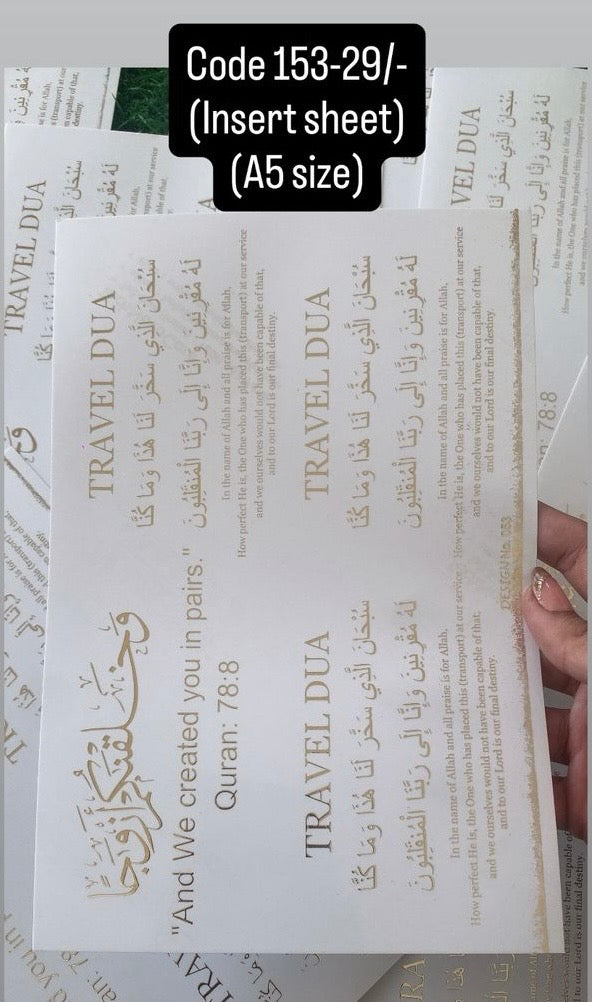 Code 153-29/-
(Insert sheet)
(A5 size)
TRAVEL DUA
سُبْحَانَ الَّذِي سَخَّرَ لَنَا هَٰذَا وَمَا كُنَّا
لَهُ مُقْرِنِينَ وَإِنَّا إِلَى رَبِّنَا لَمُنْقَلِبُونَ
In the name of Allah and all praise is for Allah,
How perfect He is, the One who has placed this (transport) at our service
and we ourselves would not have been capable of that,
and to our Lord is our final destiny.
وَخَلَقْنَاكُمْ أَزْوَاجًا
"And We created you in pairs."
Quran: 78:8
TRAVEL DUA
سُبْحَانَ الَّذِي سَخَّرَ لَنَا هَٰذَا وَمَا كُنَّا
لَهُ مُقْرِنِينَ وَإِنَّا إِلَى رَبِّنَا لَمُنْقَلِبُونَ
In the name of Allah and all praise is for Allah,
How perfect He is, the One who has placed this (transport) at our service
and we ourselves would not have been capable of that,
and to our Lord is our final destiny.
TRAVEL DUA
سُبْحَانَ الَّذِي سَخَّرَ لَنَا هَٰذَا وَمَا كُنَّا
لَهُ مُقْرِنِينَ وَإِنَّا إِلَى رَبِّنَا لَمُنْقَلِبُونَ
In the name of Allah and all praise is for Allah,
How perfect He is, the One who has placed this (transport) at our service
and we ourselves would not have been capable of that,
and to our Lord is our final destiny.
DESIGN No. 053
TRAVEL DUA
VEL DUA
In the name of Allah and all praise is for Allah,
78:8